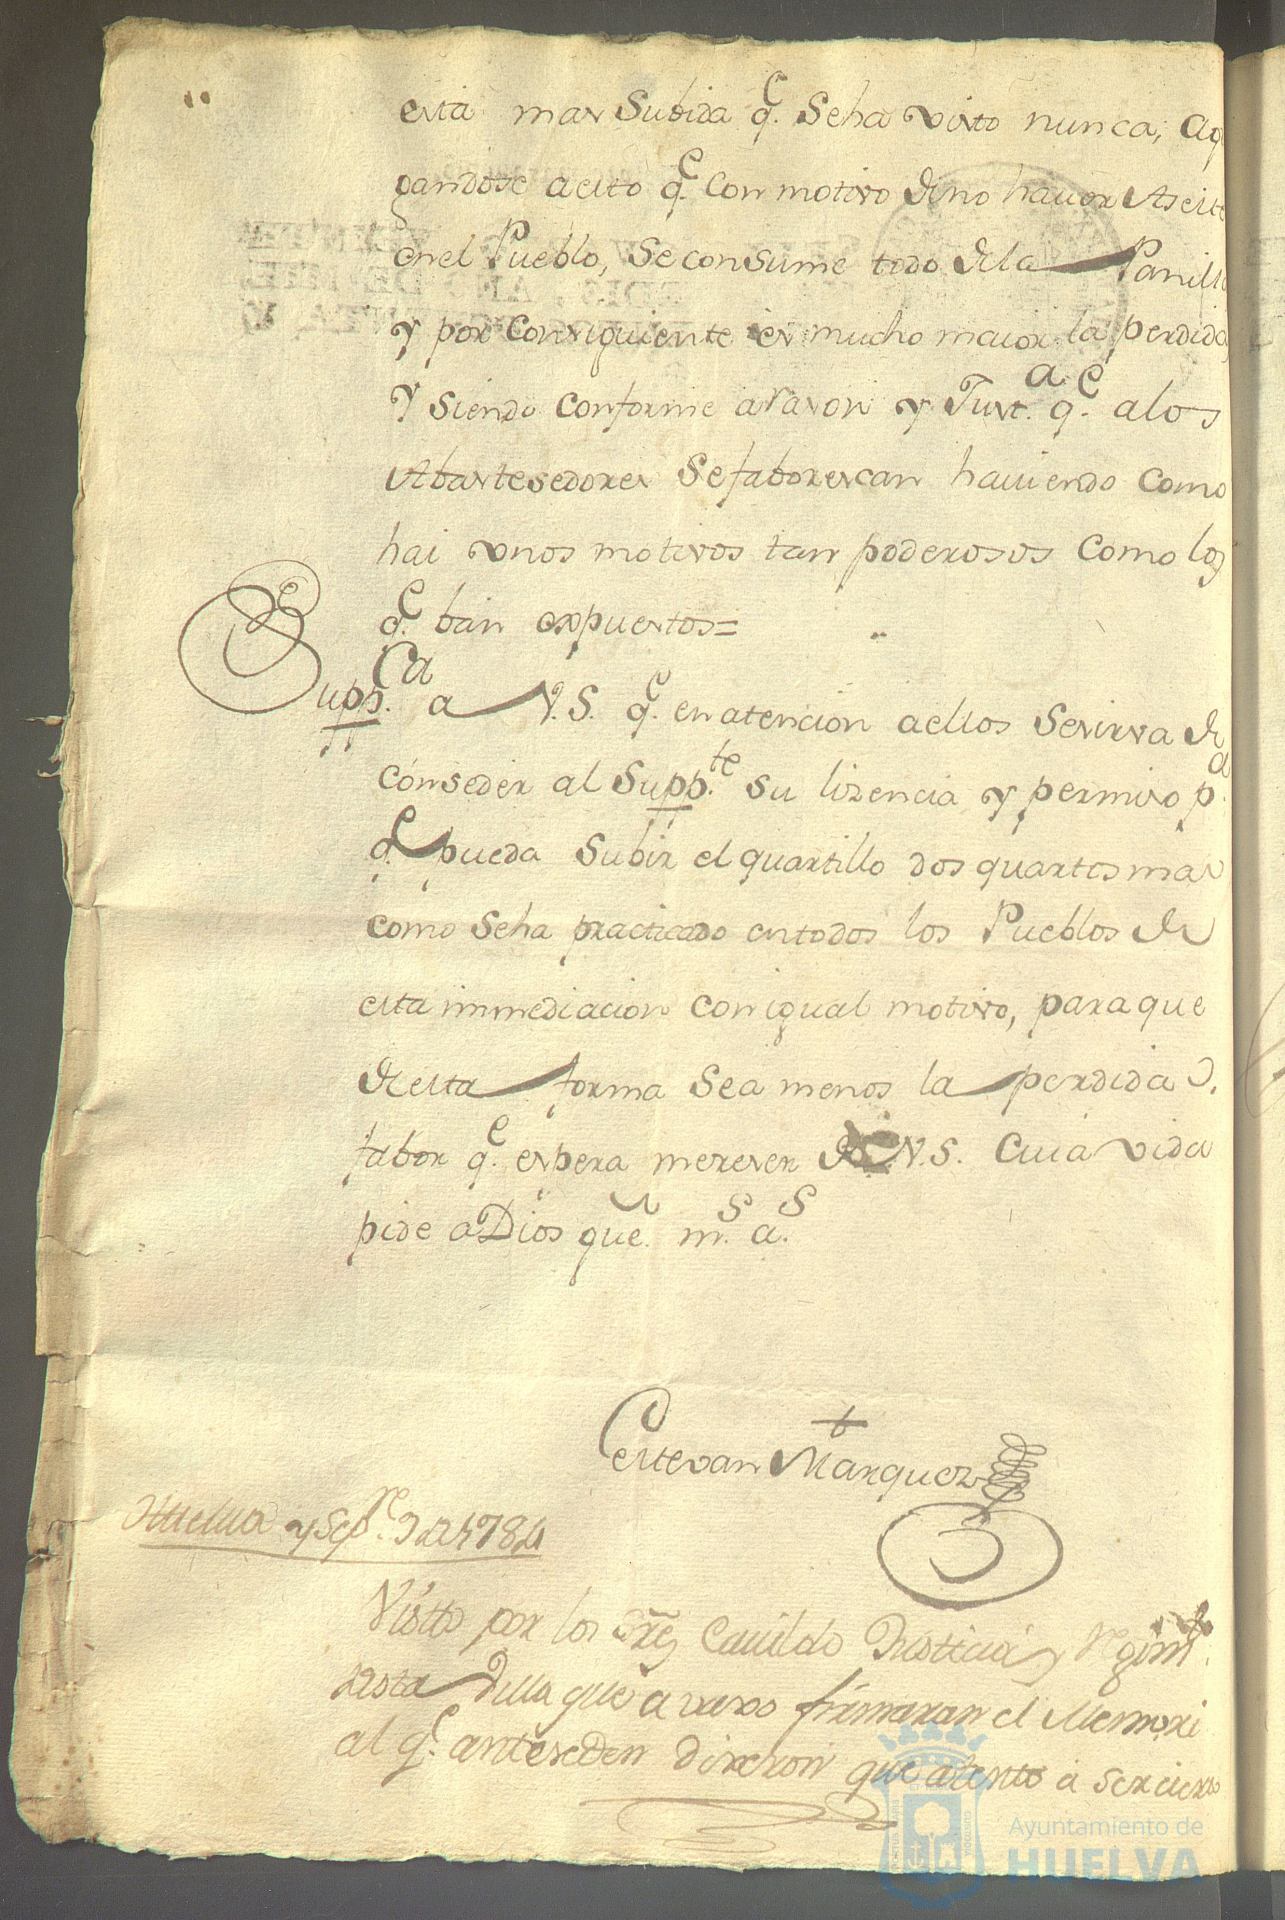 esta mas Subida q.e Seha visto nunca; Agre
gandose aesto q.e Con motivo deno hauer Aseite
enel Pueblo, Seconsume todo dela Panilla
y por Consiguiente es mucho maior la perdida,
Y siendo conforme arason y Just.a q.e alos
Abastesedores Sefaborescan hauiendo Como
hai vnos motivos tan poderosos Como los
q.e ban expuestos=
Supp.ca a V.S. q.e enatencion aellos Sesirva de
conseder al Supp.te su lisencia y permiso p.a
q.e pueda Subir el quartillo dos quartos mas
como Seha practicado entodos los Pueblos de
esta immediacion con igual motivo, para que
deesta forma sea menos la perdida
fabor q.e espera mereser de V.S. Cuia vida
pide aDios que. m.s a.s
estevan Marquez
Huelva y Sep.re 9 de 1784
Visto por los Sres Cauildo Justicia y Regim.to
desta Villa que avaxo firmaran el Memori
al q.e anteseden dixeron que atento a ser cierto
Ayuntamiento de
HUELVA